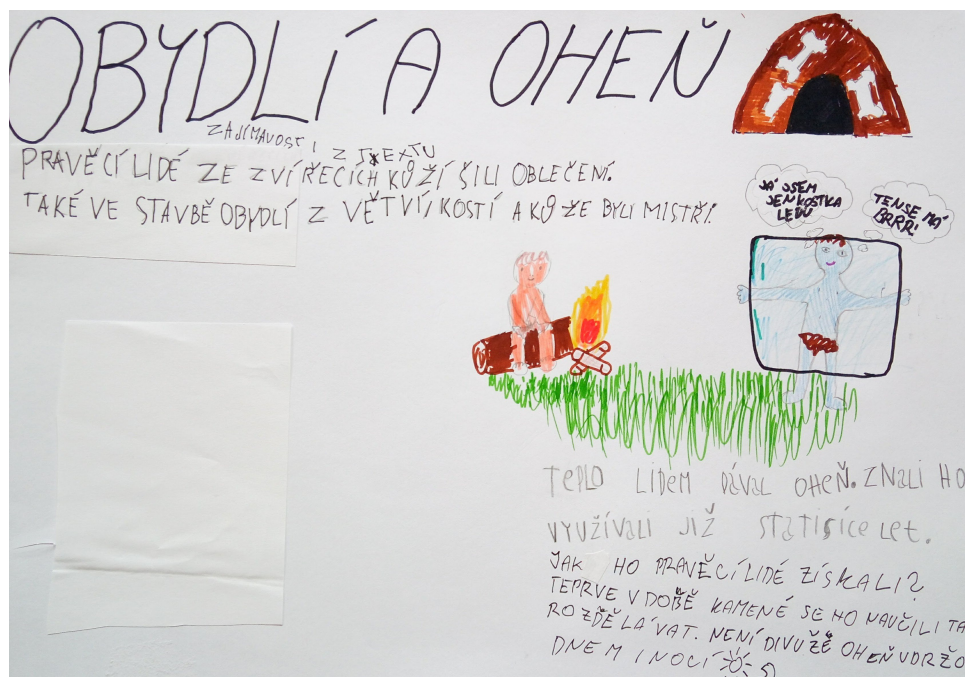 OBYDLÍ A OHEŇ
ZAJÍMAVOSTI Z TEXTU
PRAVĚCÍ LIDÉ ZE ZVÍŘECÍCH KŮŽÍ ŠILI OBLEČENÍ.
TAKÉ VE STAVBĚ OBYDLÍ Z VĚTVÍ, KOSTÍ A KŮŽE BYLI MISTŘI.
JÁ JSEM
JEN KOSTKA
LEDU
TEN SE MÁ
BRRR!
TEPLO LIDEM DÁVAL OHEŇ. ZNALI HO
VYUŽÍVALI JIŽ STATISÍCE LET.
JAK HO PRAVĚCÍ LIDÉ ZÍSKALI?
TEPRVE V DOBĚ KAMENÉ SE HO NAUČILI TA
ROZDĚLÁVAT. NENÍ DIVU ŽE OHEŇ UDRŽO
DNEM I NOCÍ